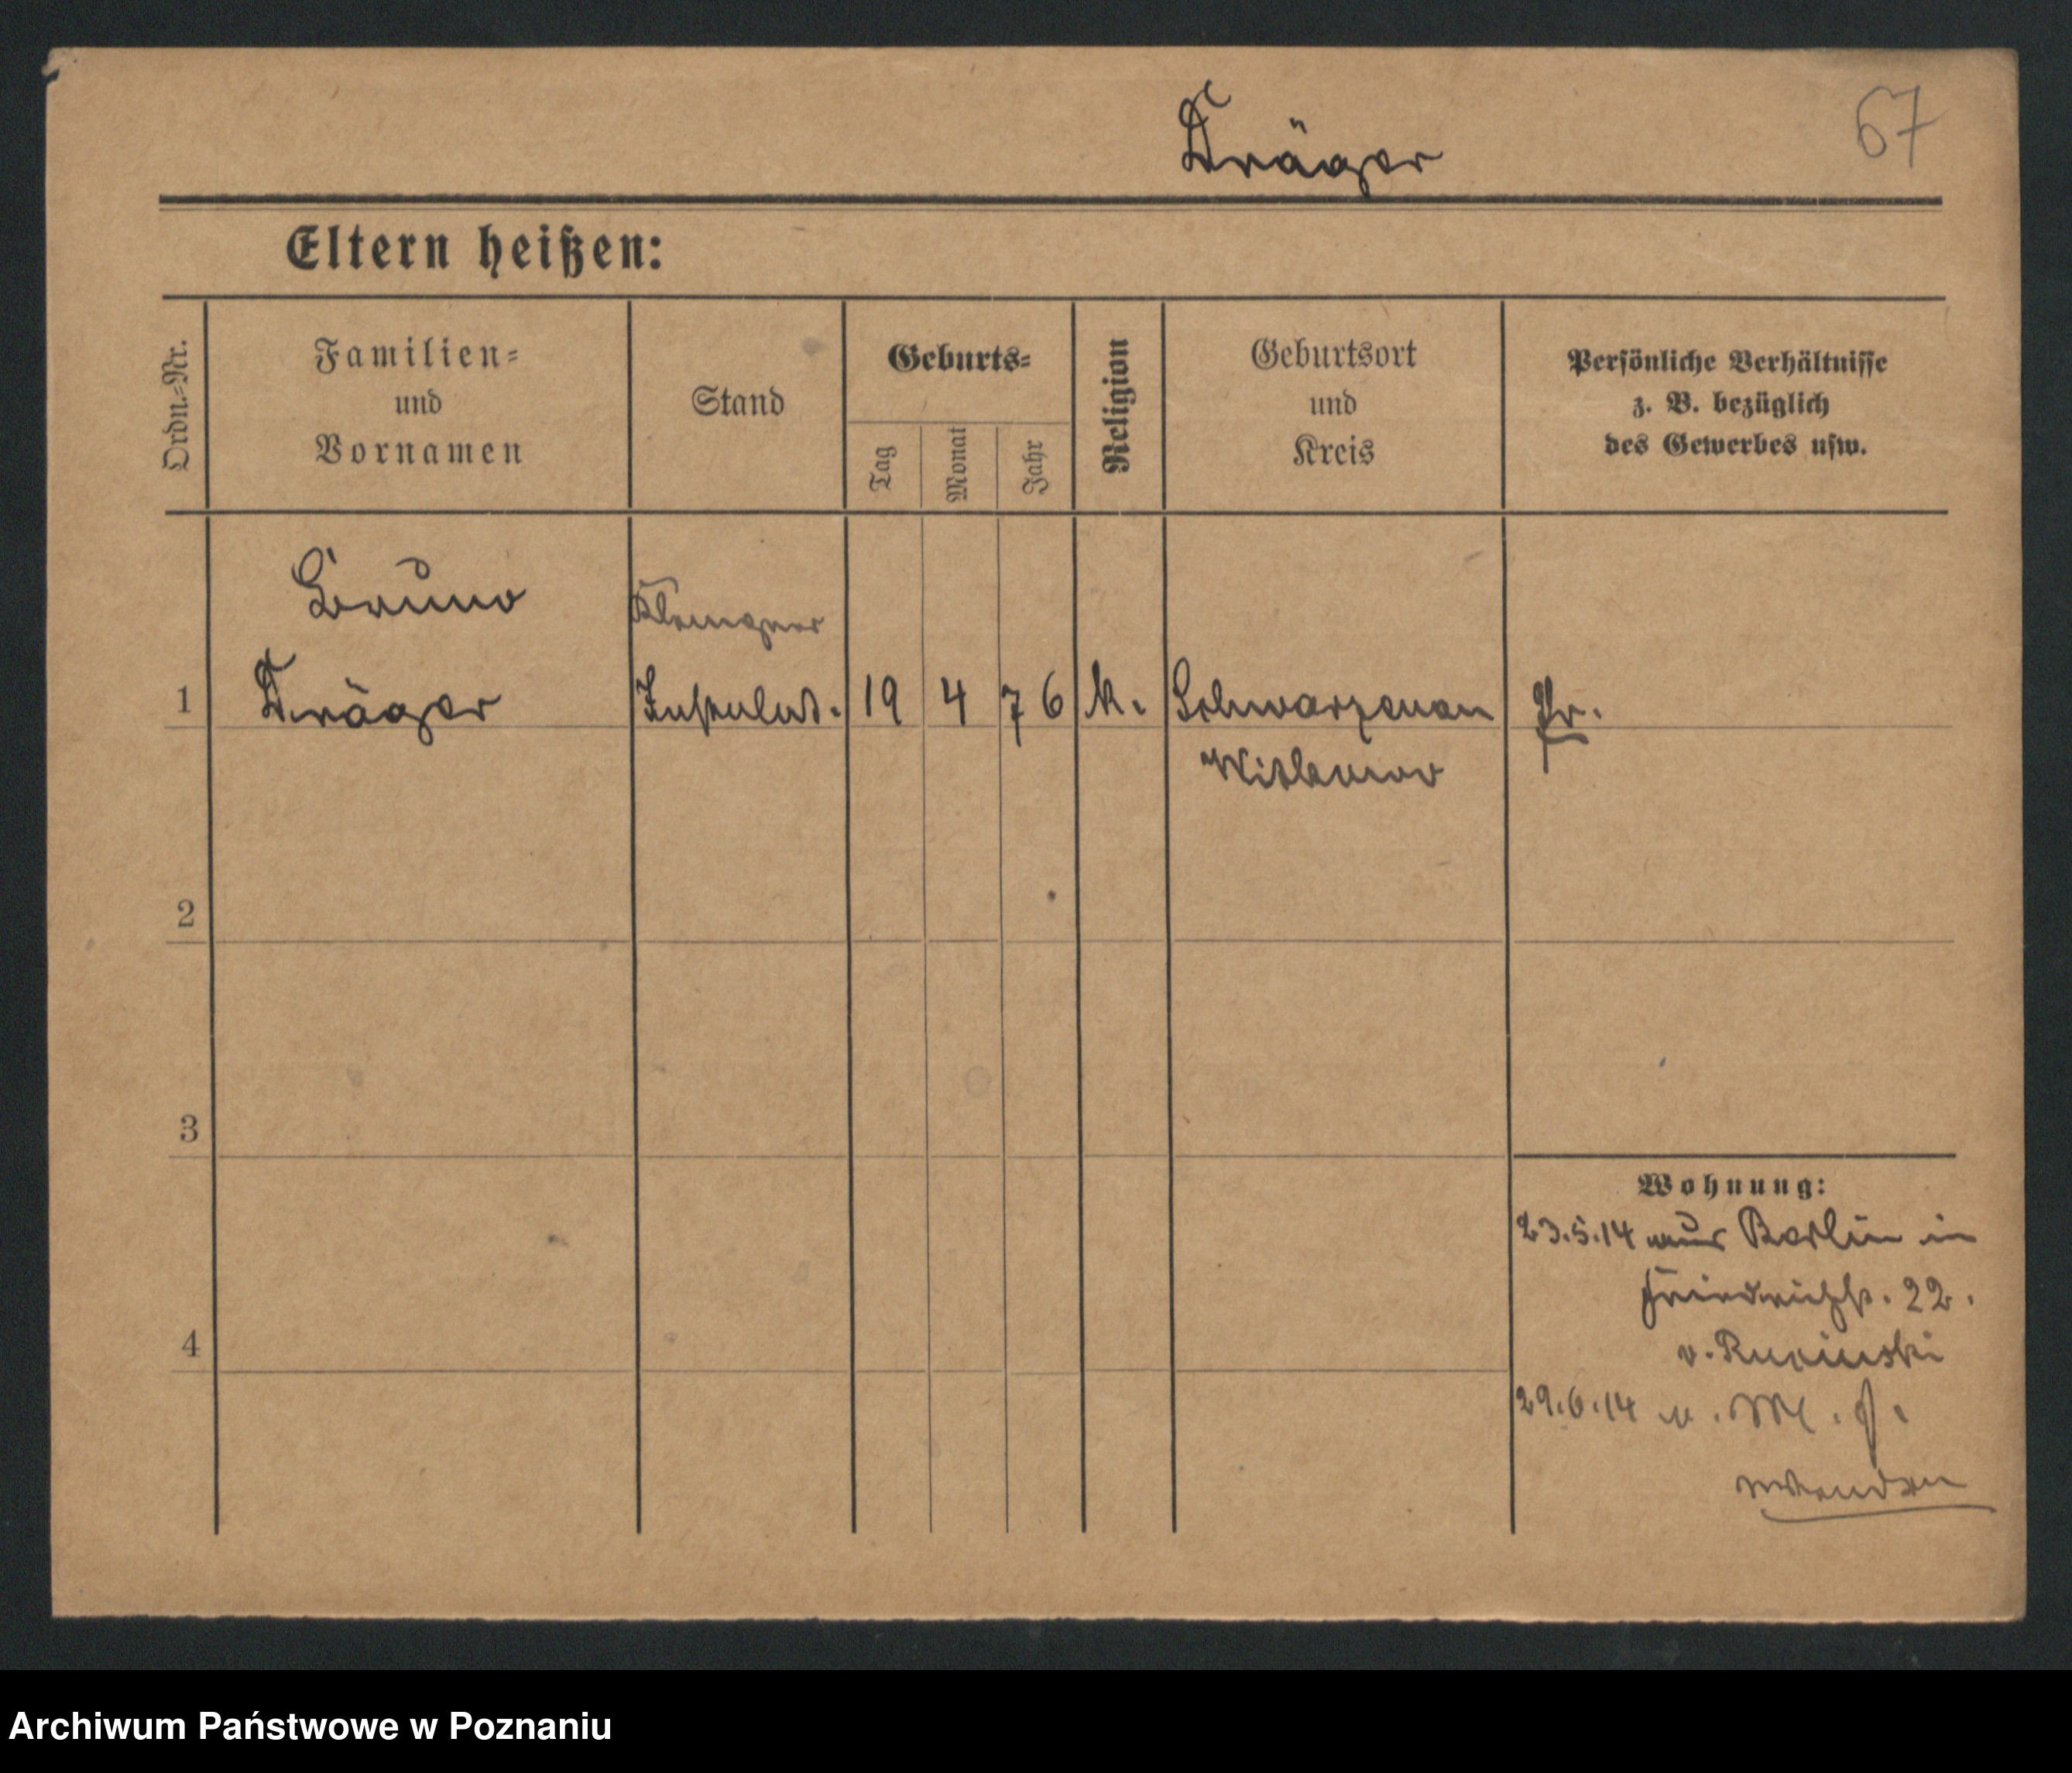 Kräger
67
Eltern heißen:
Ordn.-Nr.
Familien-
und
Vornamen
Stand
Geburts-
Tag
Monat
Jahr
Religion
Geburtsort
und
Kreis
Persönliche Verhältnisse
z. B. bezüglich
des Gewerbes usw.
Bruno
Klempner
1 Kräger Installat. 19 4 76 k. Schwarzenau Pr.
Witkowo
2
3
4
Wohnung:
23.5.14 aus Berlin in
Friedrichstr. 22.
v. Rucinski
29.6.14 n. M.
wenden
Archiwum Państwowe w Poznaniu